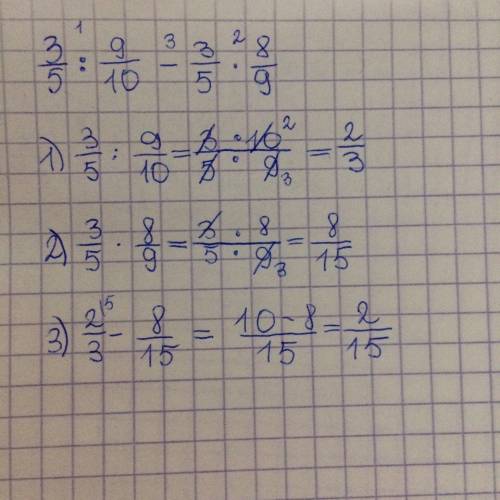 3/5 :¹ 9/10 -³ 3/5 ·² 8/9
1) 3/5 : 9/10 = 3 · 10² / 5 · 9₃ = 2/3
2) 3/5 · 8/9 = 3 · 8 / 5 · 9₃ = 8/15
3) 2/3⁵ - 8/15 = 10 - 8 / 15 = 2/15